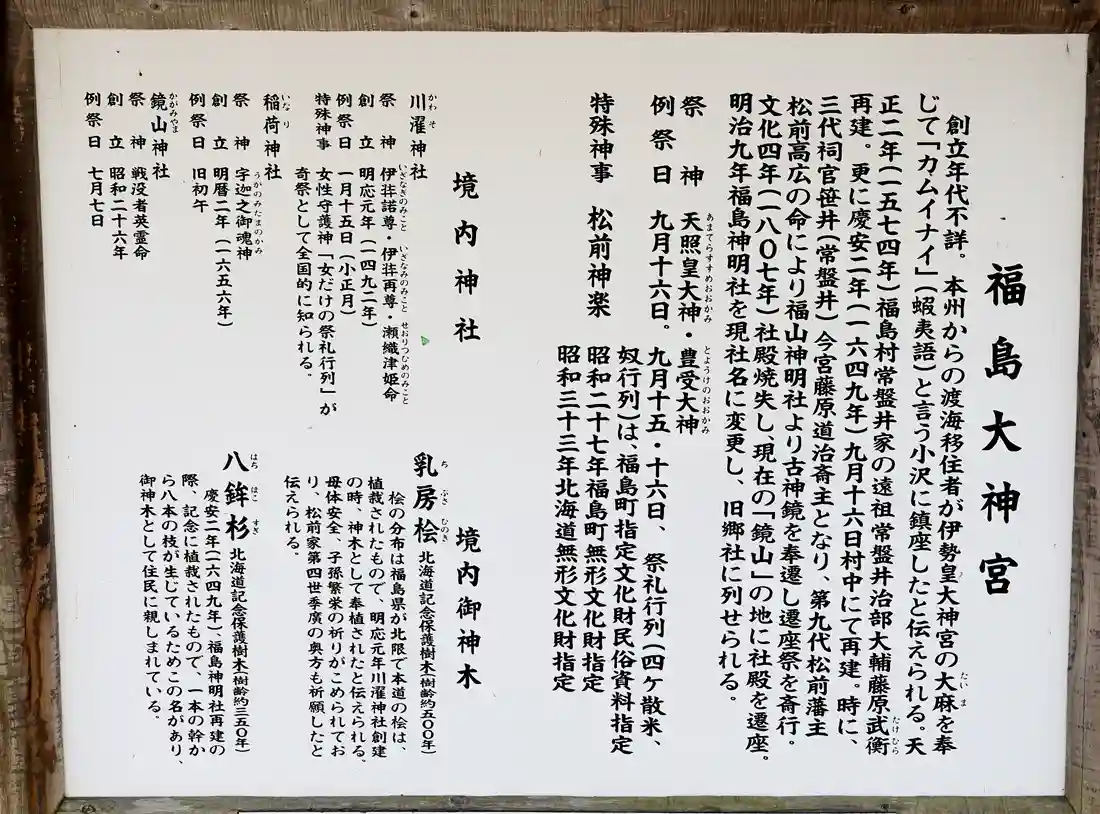 福島大神宮
創立年代不詳。本州からの渡海移住者が伊勢皇大神宮の大麻を奉
じて「カムイナイ」(蝦夷語)と言う小沢に鎮座したと伝えられる。天
正二年(一五七四年)福島村常盤井家の遠祖常盤井治部大輔藤原武衡
再建。更に慶安二年(一六四九年)九月十六日村中にて再建。時に、
三代祠官笹井(常盤井)今宮藤原道治斎主となり、第九代松前藩主
松前高広の命により福山神明社より古神鏡を奉遷し遷座祭を斎行。
文化四年(一八〇七年)社殿焼失し、現在の「鏡山」の地に社殿を遷座。
明治九年福島神明社を現社名に変更し、旧郷社に列せられる。
祭神 天照皇大神・豊受大神
例祭日 九月十六日。九月十五・十六日、祭礼行列(四ケ散米、
奴行列)は、福島町指定文化財民俗資料指定
特殊神事 松前神楽 昭和二十七年福島町無形文化財指定
昭和三十三年北海道無形文化財指定
境内神社
川濯神社
祭神 伊弉諾尊・伊弉再尊・瀬織津姫命
創立 明応元年(一四九二年)
例祭日 一月十五日(小正月)
特殊神事 女性守護神「女だけの祭礼行列」が
奇祭として全国的に知られる。
稲荷神社
祭神 宇迦之御魂神
創立 明暦二年(一六五六年)
例祭日 旧初午
鏡山神社
祭神 戦没者英霊命
創立 昭和二十六年
例祭日 七月七日
境内御神木
乳房桧 北海道記念保護樹木(樹齢約五〇〇年)
桧の分布は福島県が北限で本道の桧は、
植栽されたもので、明応元年川濯神社創建
の時、神木として奉植されたと伝えられる。
母体安全、子孫繁栄の祈りがこめられてお
り、松前家第四世季廣の奥方も祈願したと
伝えられる。
八鉾杉 北海道記念保護樹木(樹齢約三五〇年)
慶安二年(一六四九年)、福島神明社再建の
際、記念に植栽されたもので、一本の幹か
ら八本の枝が生じているためこの名があり、
御神木として住民に親しまれている。